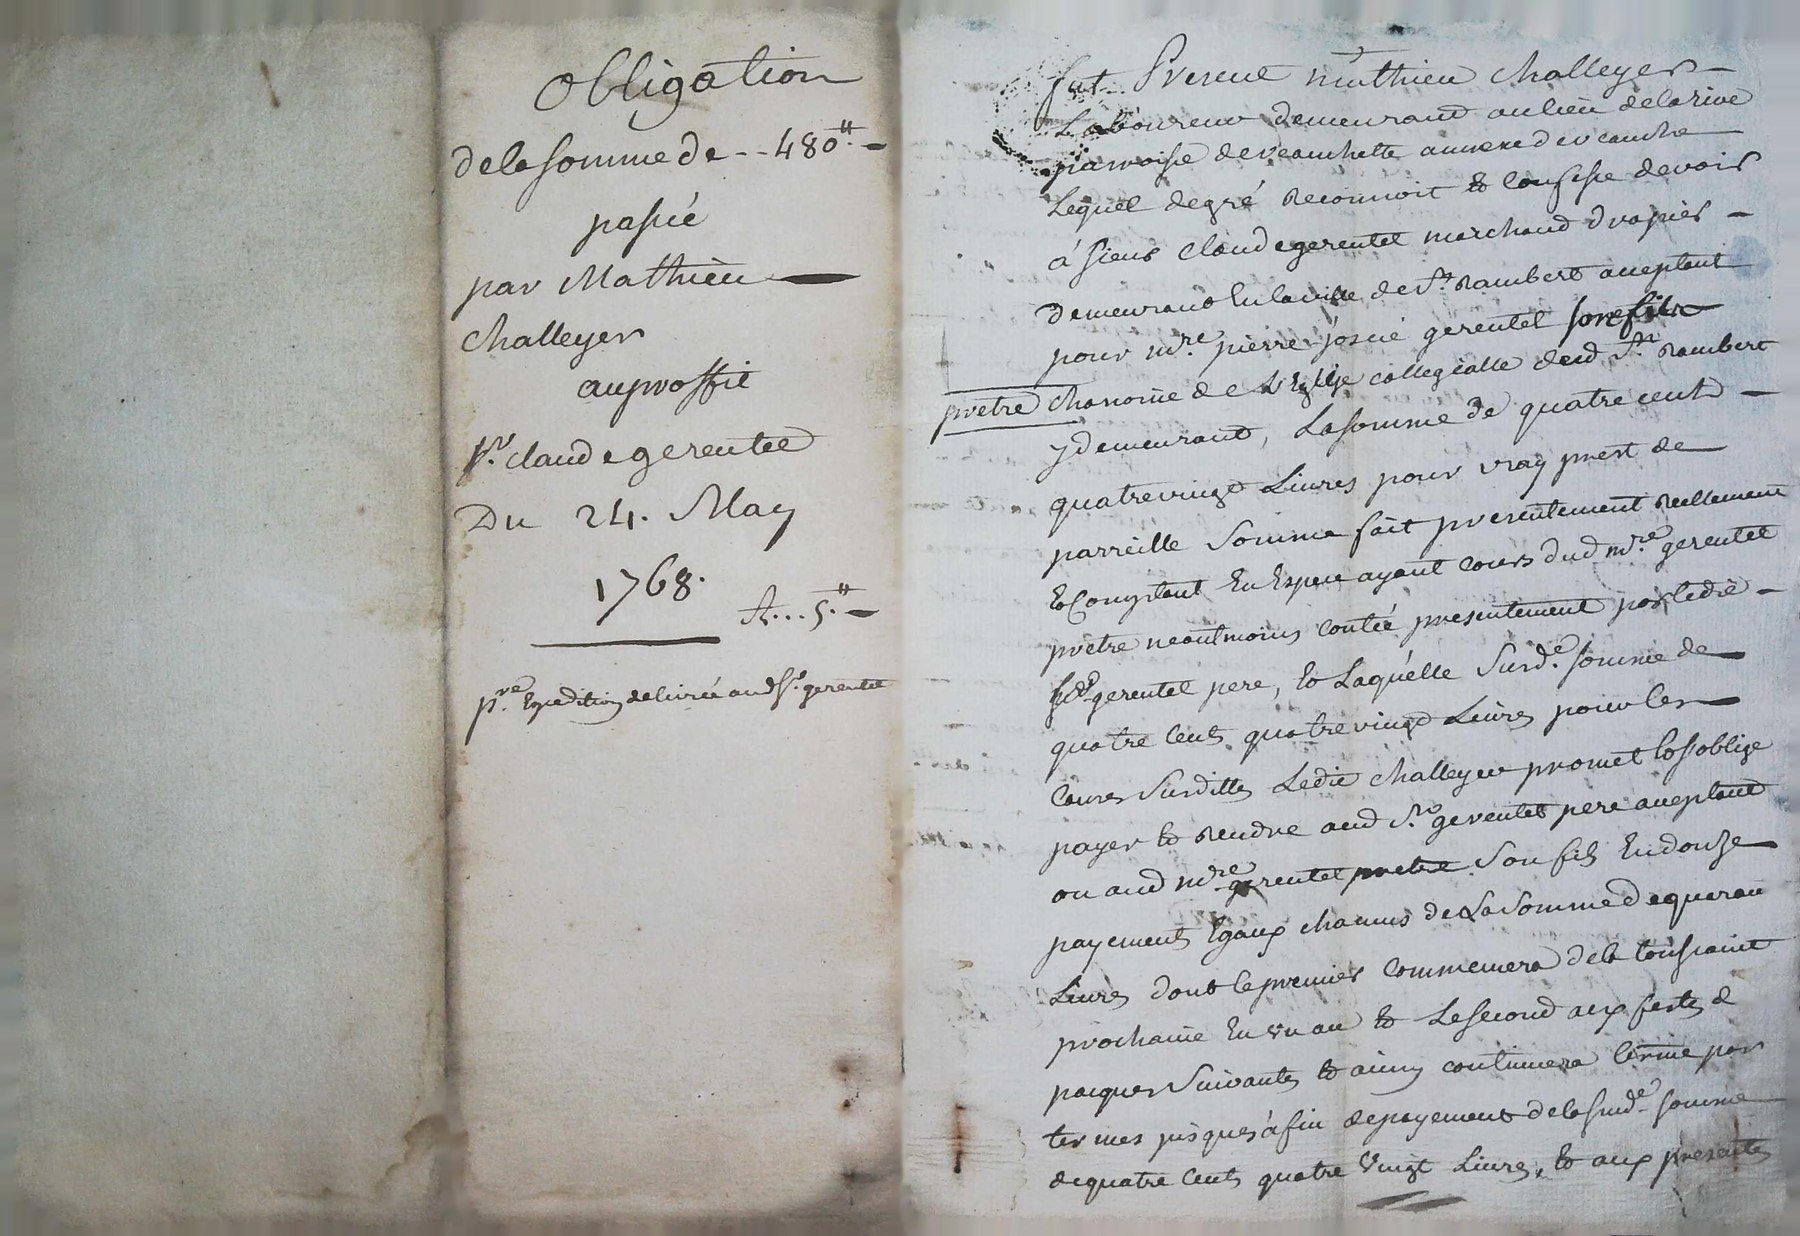 Obligation
de la somme de -- 480.ᵗᵗ -
passée
par Mathieu
challeyer
au proffit
Sr. claude gerentet
Du 24. May
1768.
A... 5.ᵗᵗ -
pre. Expedition delivrée aud Sr. gerentet
fut Present mathieu challeyer
Laboureur demeurant au lieu de la rive
parroisse de veauchette annexe de veauche
Lequel de gré reconnoit et confesse devoir
á sieur claude gerentet marchand drapier -
demeurant En la ville de St. Rambert aceptant
pour mre. pierre josué gerentet son fils
prêtre chanoine de L'Eglise collegialle dud St. Rambert
y demeurant, La somme de quatre cents -
quatre vingt Livres pour vray prest de
parreille somme fait presentement reellement
et Comptant En Espece ayant cours dud mre. gerentet
prêtre neantmoins contée presentement par ledit -
Sr. gerentet pere, et Laquelle Susde. somme de
quatre Cents quatre vingt Livres pour les
Causes Susdittes Ledit challeyer promet et s'oblige
payer et rendre aud Sr. gerentet pere aceptant
ou aud mre. gerentet prêtre son fils En douze
payements Egaux chacuns de La somme de quarante
Livres dont le premier commencera de la toussaint
prochaine En un an et Le second aux festes de
pacques suivantes et ainsy continuera terme par
termes jusques á fin de payement de la susde. somme
de quatre Cents quatre vingt Livres, et aux presentes